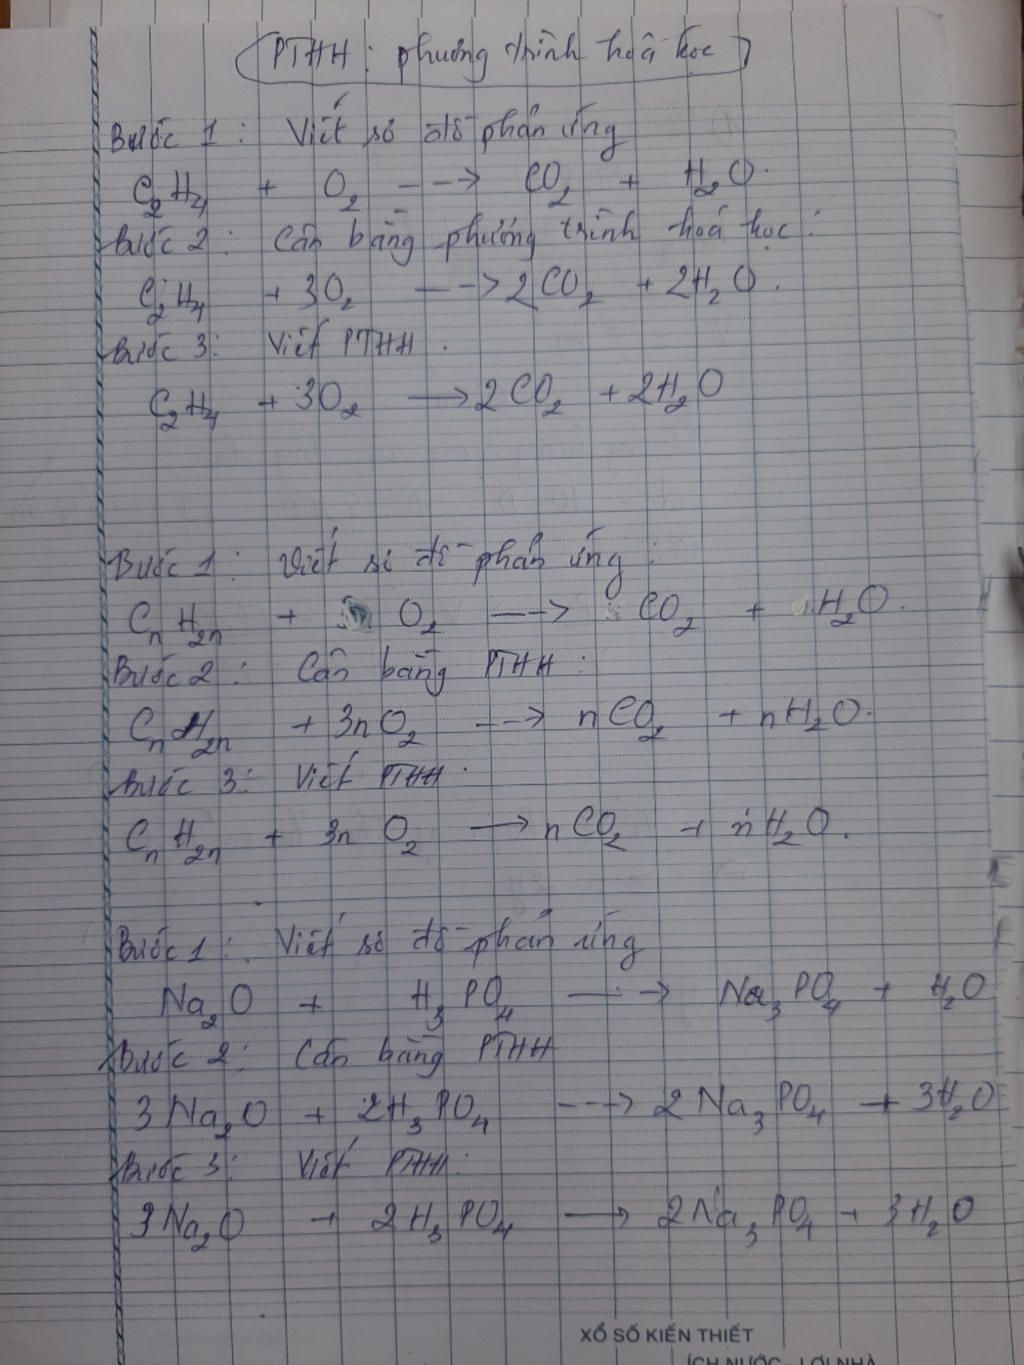 PTHH : phương trình hoá học
Bước 1 : Viết sơ đồ phản ứng
C₂H₄ + O₂ --> CO₂ + H₂O.
Bước 2 : Cân bằng phương trình hoá học :
C₂H₄ + 3O₂ --> 2CO₂ + 2H₂O.
Bước 3 : Viết PTHH .
C₂H₄ + 3O₂ → 2CO₂ + 2H₂O
Bước 1 : Viết sơ đồ phản ứng :
CₙH₂ₙ + O₂ --> CO₂ + H₂O.
Bước 2 : Cân bằng PTHH :
CₙH₂ₙ + 3nO₂ --> nCO₂ + nH₂O.
Bước 3 : Viết PTHH .
CₙH₂ₙ + 3n O₂ → nCO₂ + nH₂O.
Bước 1 : Viết sơ đồ phản ứng
Na₂O + H₃PO₄ --> Na₃PO₄ + H₂O
Bước 2 : Cân bằng PTHH
3Na₂O + 2H₃PO₄ --> 2Na₃PO₄ + 3H₂O
Bước 3 : Viết PTHH :
3Na₂O + 2H₃PO₄ → 2Na₃PO₄ + 3H₂O
XỔ SỐ KIẾN THIẾT
ÍCH NƯỚC - LỢI NHÀ